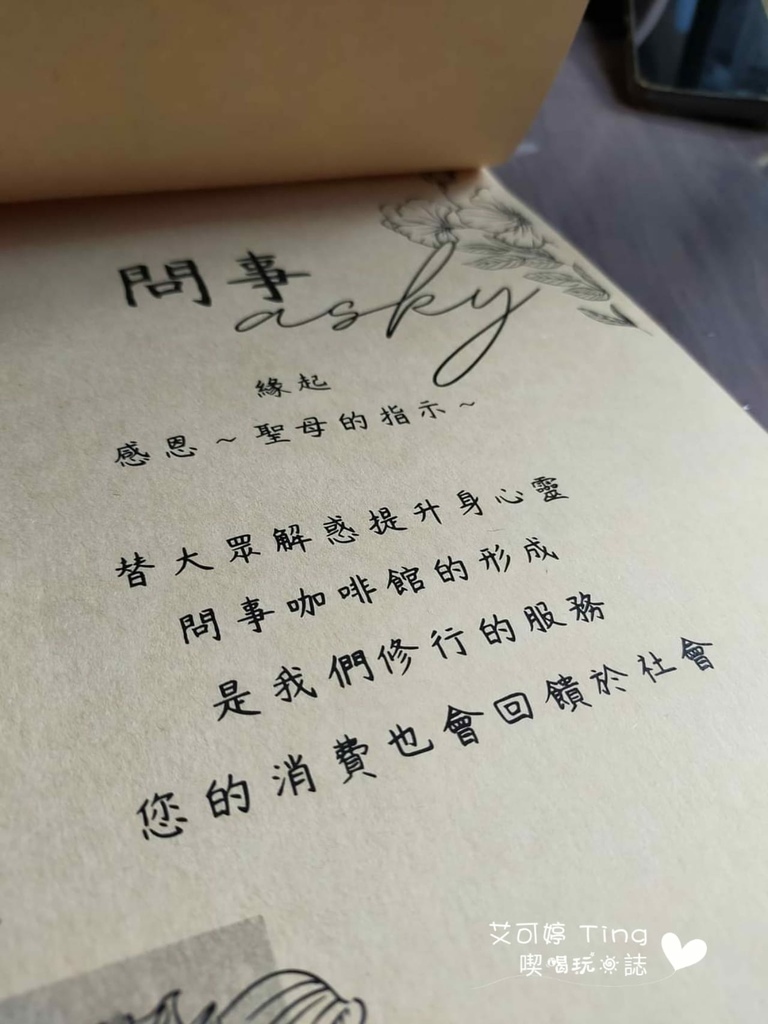 問事
asky
緣起
感恩~聖母的指示~
替大眾解惑提升身心靈
問事咖啡館的形成
是我們修行的服務
您的消費也會回饋於社會
艾可婷 Ting
喫喝玩樂誌